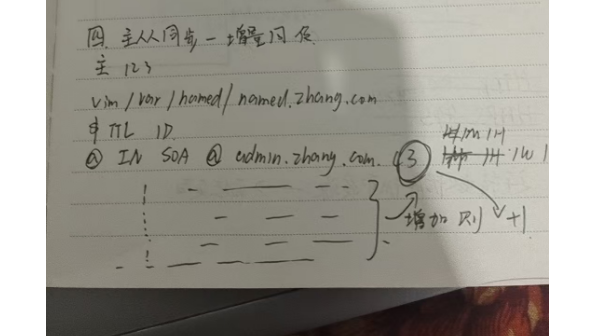 四、主从同步-增量同步
主 123
vim /var/named/named.zhang.com
$ TTL 1D
@ IN SOA @ admin.zhang.com. (3 1H 1W 1
1M 1H
增加则+1